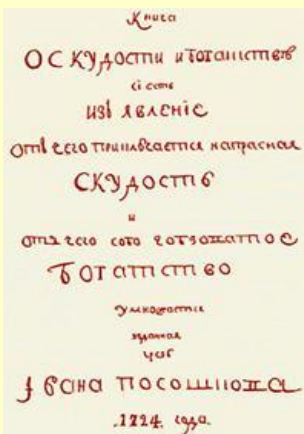 Книга
О СКУДОСТИ и богатствѣ
сі есть
изъявление
отчего приключается напрасная
СКУДОСТЬ
и
отчего
БОГАТСТВО
умножается
Ивана ПОСОШКОВА
1724 года.